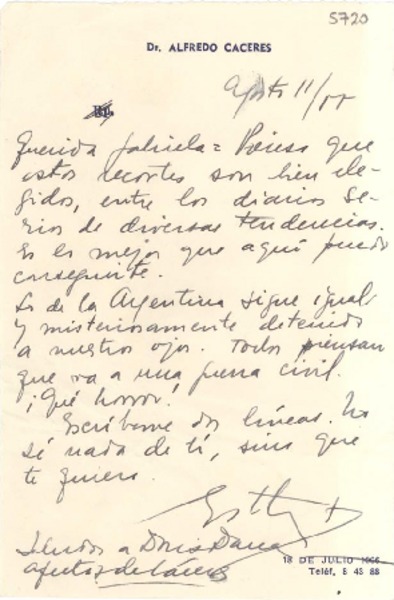 5720
Dr. ALFREDO CACERES
Rp.
Agosto 11/55
Querida Gabriela = Pienso que
estos recortes son bien ele-
gidos, entre los diarios se-
rios de diversas tendencias.
Es lo mejor que aquí puedo
conseguirte.
Lo de la Argentina sigue igual
y misteriosamente detenido
a nuestros ojos. Todos piensan
que va a una guerra civil.
¡Qué horror!
Escríbeme dos líneas. No
sé nada de ti, sino que
te quiero.
Esther
Saludos a Doris Dana
afectos de Cáceres
18 DE JULIO
Teléf. 8 43 88